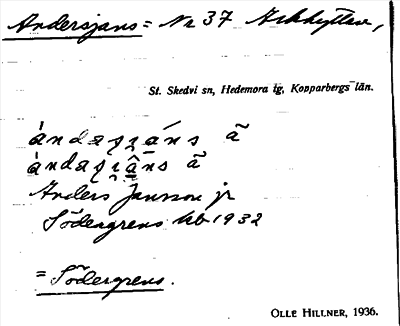 Andersjans = Nr 37 Arkhyttan,
St. Skedvi sn, Hedemora tg, Kopparbergs län.
Anders Jansson jr
Södergrens hb 1932
= Södergrens.
OLLE HILLNER, 1936.